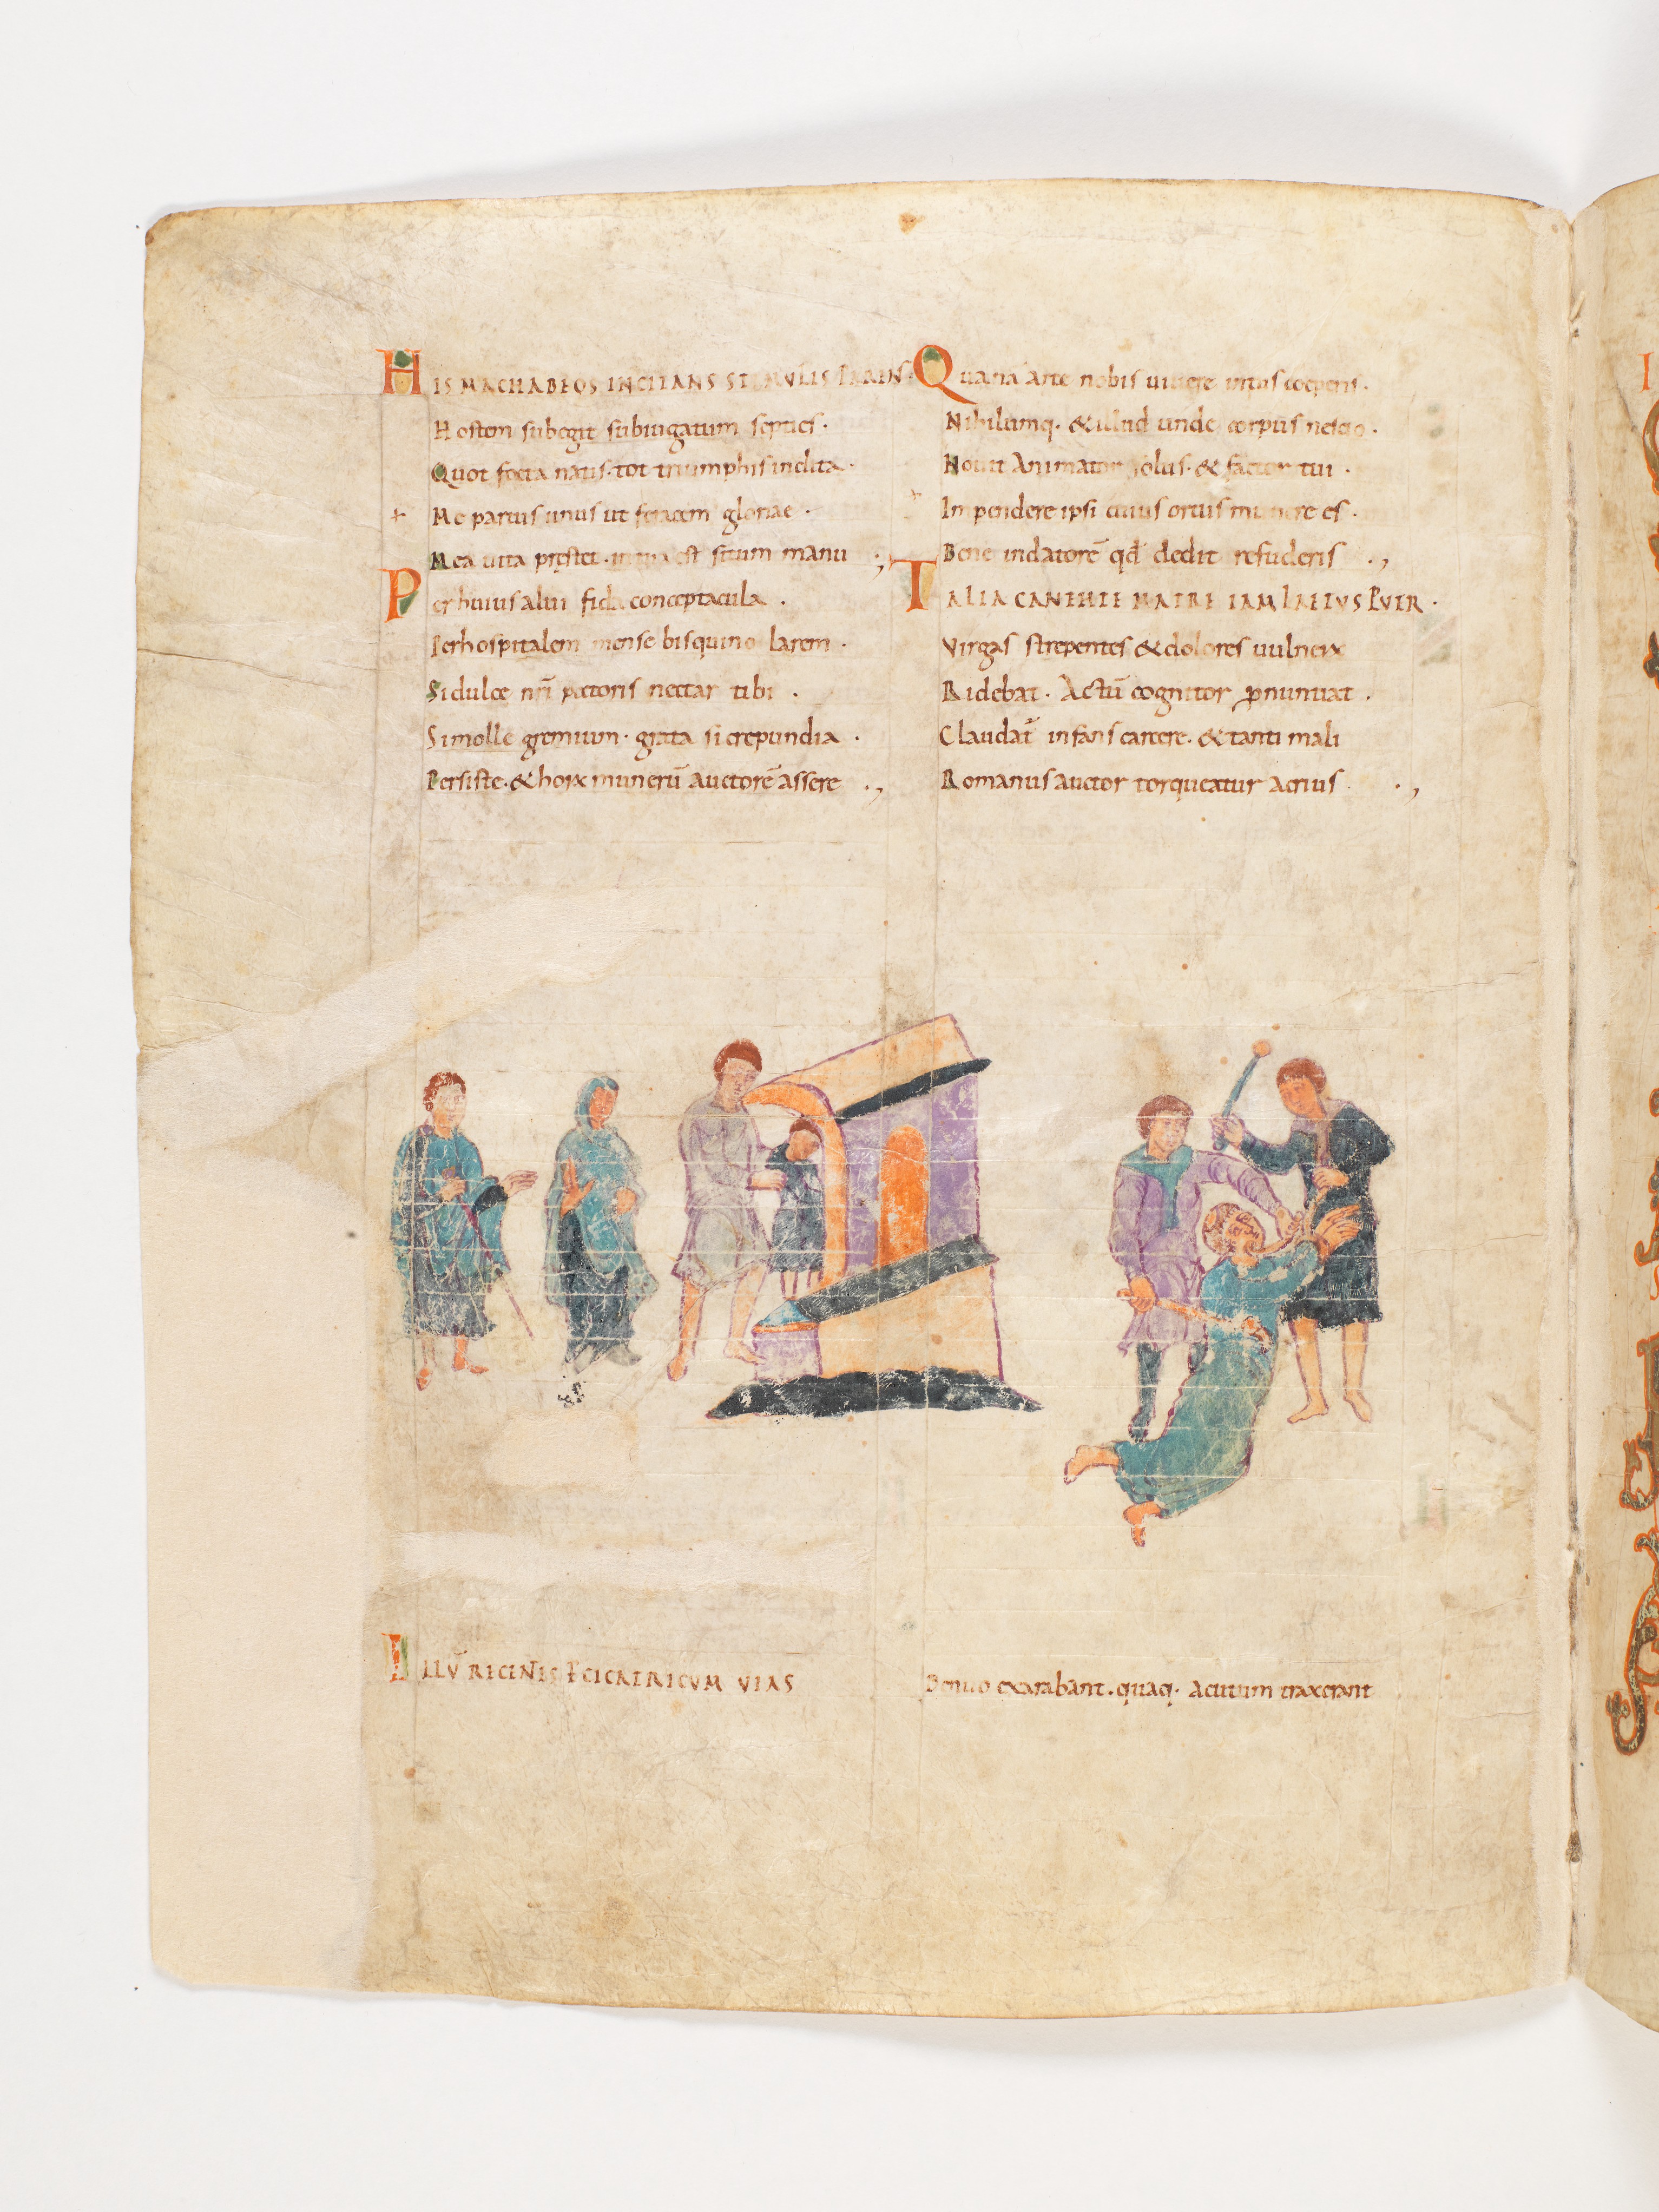 HIS MACHABEOS INCITANS STIMULIS PARENS
Hostem subegit subiugatum septies·
Quot foeta natis· tot triumphis inclita·
Me partus unus ut feracem gloriae·
Mea vita prestet· in tua est situm manu ;
Per huius alvi fida conceptacula·
Per hospitalem mense bisquino larem·
Si dulce nrī pectoris nectar tibi·
Si molle gremium· grata si crepundia·
Persiste· & horx munerū auctorē assere .,
Quana arte nobis vivere intus coeperis·
Nihilumq· & illud unde corpus nescio·
Novit Animator solus· & factor tui·
Inpendere ipsi cuius ortus munere es·
Bene in datorē qd̄ dedit refuderis .,
TALIA CANENTE MATRE IAM LAETUS PUER·
Virgas strepentes & dolores vulnerx
Ridebat· Actū cognitor pronuntiat·
Claudat̄ infans carcere· & tanti mali
Romanus auctor torqueatur acrius· .,
ILLŪ RECENTES CICATRICUM VIAS
Denuo exarabant· quaq· acutum traxerant